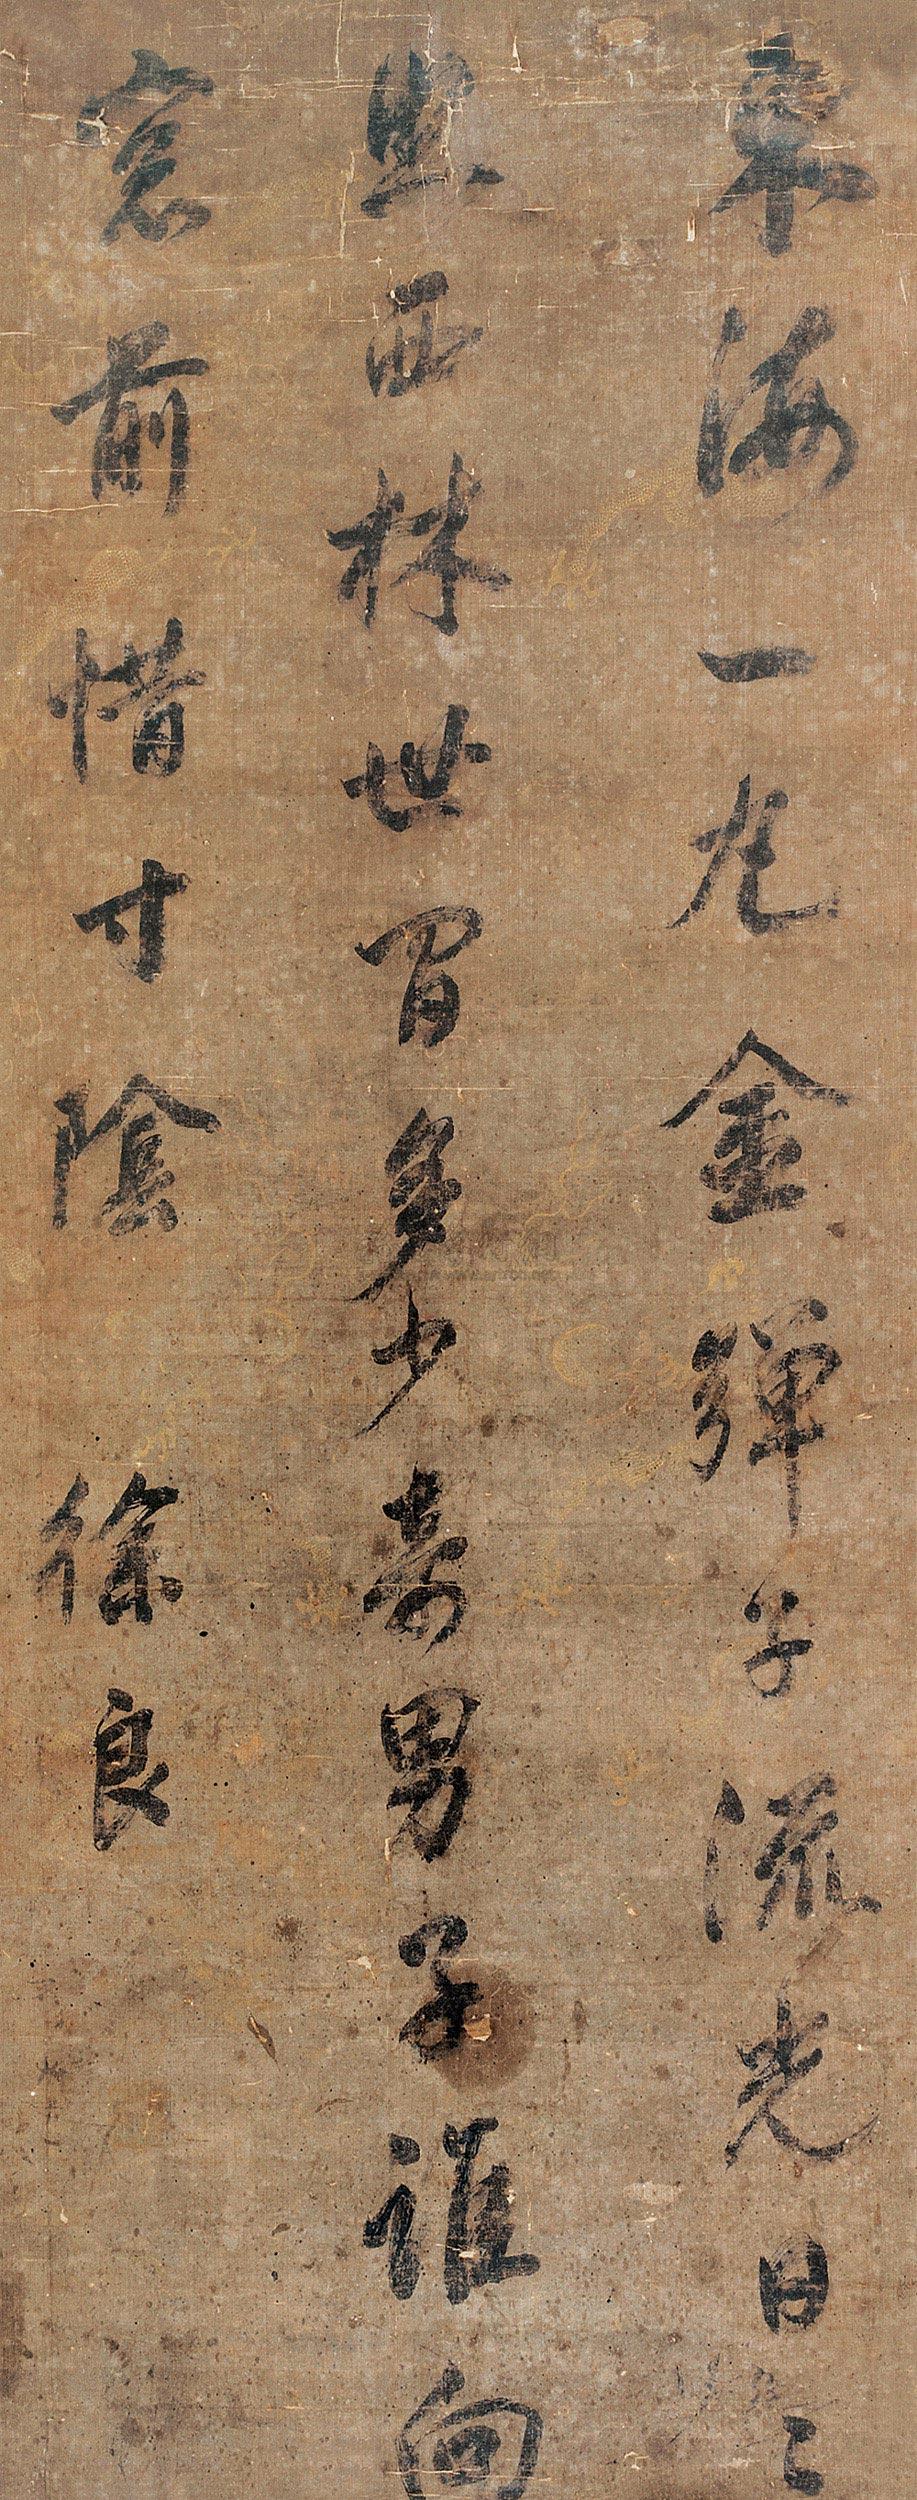 東海一丸金彈子流光日々
照西林世間多少奇男子誰向
窓前惜寸陰 徐良